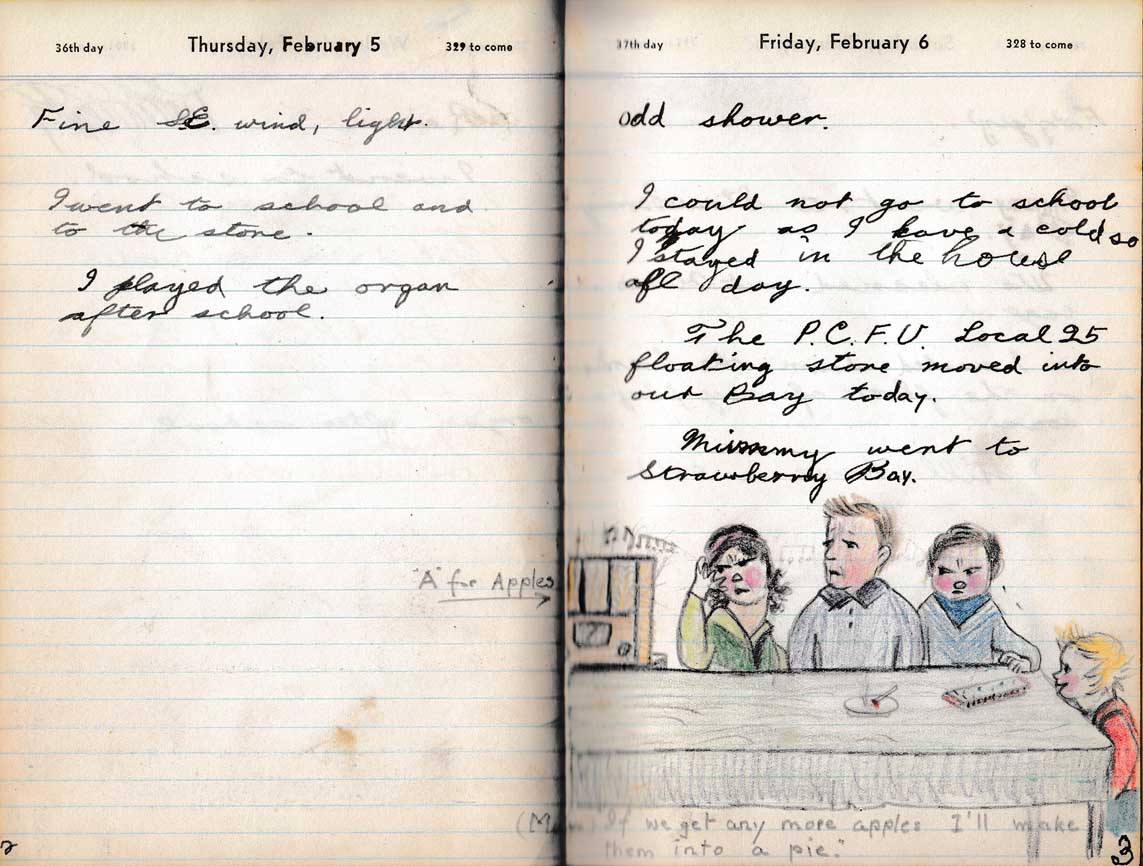 36th day Thursday, February 5 329 to come
Fine SE. wind, light.
I went to school and
to the store.
I played the organ
after school.
"A" for Apples
37th day Friday, February 6 328 to come
odd shower.
I could not go to school
today as I have a cold so
I stayed in the house
all day.
The P.C.F.U. Local 25
floating store moved into
our Bay today.
Mummy went to
Strawberry Bay.
If we get any more apples I'll make
them into a pie."